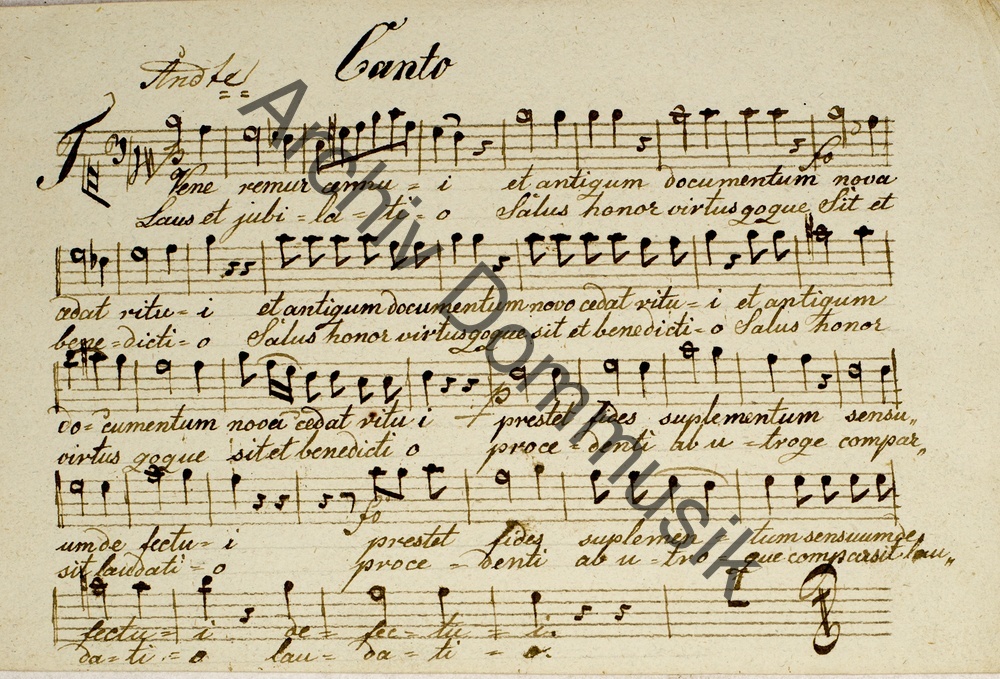 Canto
Andte
Vene remur cernu = i et antiqum documentum nova
Laus et jubi = la = ti = o Salus honor virtus qoque Sit et
cedat ritu = i et antiqum documentum novo cedat ritu = i et antiqum
bene = dicti = o Salus honor virtus qoque sit et benedicti = o Salus honor
do = cumentum nova cedat ritu i prestet fides suplementum sensu„
virtus qoque sit et benedicti o proce = denti ab u = troqe compar„
fo
um de fectu = i prestet fides suplemen = tum sensuum de„
sit laudati = o proce = denti ab u = tro = que compar sit lau„
fectu = i de = fec = tu = i.
da = ti = o lau = da = ti = o.
Archiv Dommusik